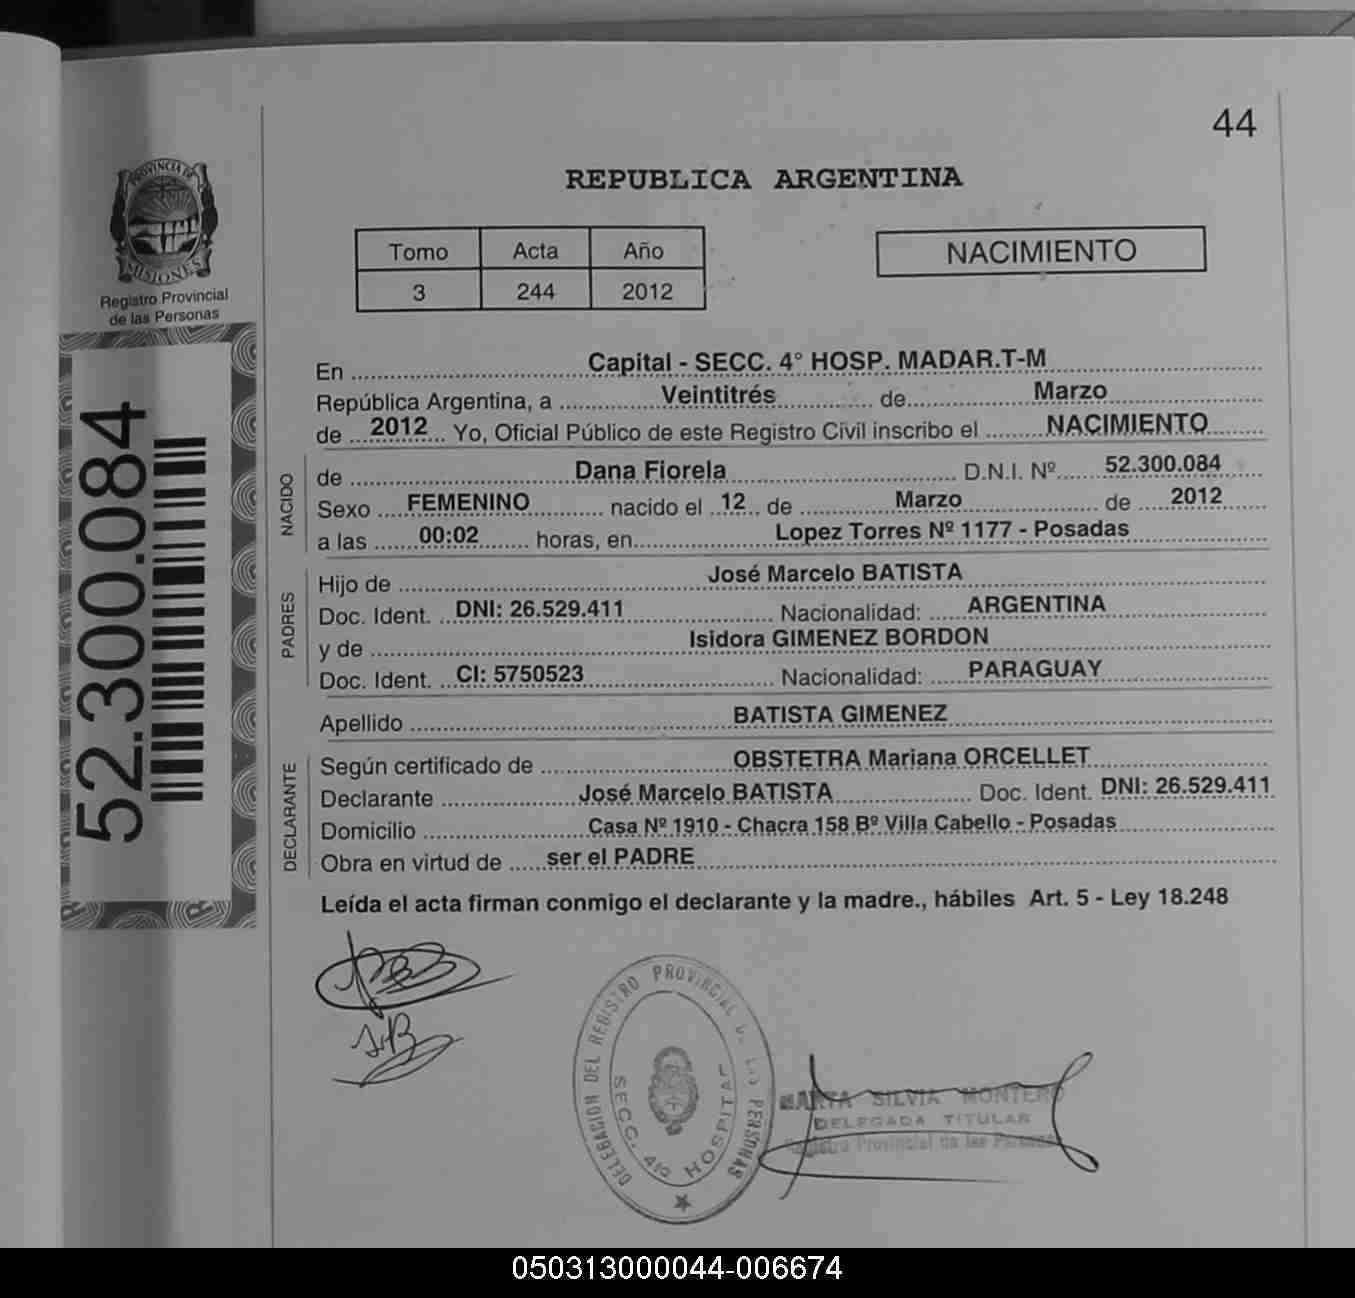 44
PROVINCIA DE
MISIONES
Registro Provincial
de las Personas
52.300.084
REPUBLICA ARGENTINA
Tomo Acta Año
3 244 2012
NACIMIENTO
En Capital - SECC. 4° HOSP. MADAR.T-M
República Argentina, a Veintitrés de Marzo
de 2012 Yo, Oficial Público de este Registro Civil inscribo el NACIMIENTO
NACIDO
de Dana Fiorela D.N.I. Nº 52.300.084
Sexo FEMENINO nacido el 12 de Marzo de 2012
a las 00:02 horas, en Lopez Torres Nº 1177 - Posadas
PADRES
Hijo de José Marcelo BATISTA
Doc. Ident. DNI: 26.529.411 Nacionalidad: ARGENTINA
y de Isidora GIMENEZ BORDON
Doc. Ident. CI: 5750523 Nacionalidad: PARAGUAY
Apellido BATISTA GIMENEZ
DECLARANTE
Según certificado de OBSTETRA Mariana ORCELLET
Declarante José Marcelo BATISTA Doc. Ident. DNI: 26.529.411
Domicilio Casa Nº 1910 - Chacra 158 Bº Villa Cabello - Posadas
Obra en virtud de ser el PADRE
Leída el acta firman conmigo el declarante y la madre., hábiles Art. 5 - Ley 18.248
DELEGACION DEL REGISTRO PROVINCIAL DE LAS PERSONAS
SECC. 4ta HOSPITAL
MARTA SILVIA MONTERO
DELEGADA TITULAR
Registro Provincial de las Personas
050313000044-006674